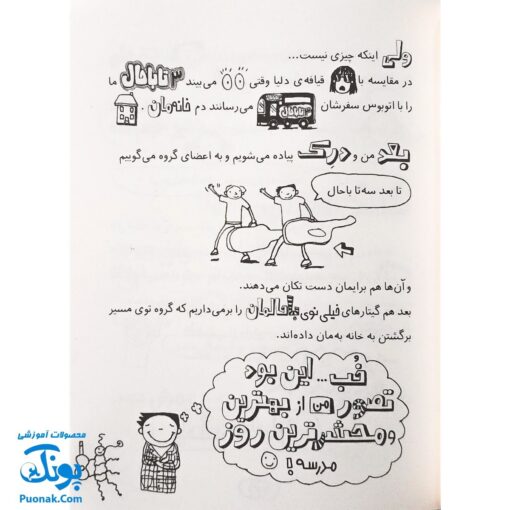 ولی اینکه چیزی نیست...
در مقایسه با قیافه‌ی دلیا وقتی می‌بیند ۳ تا باحال ما
را با اتوبوس سفرشان می‌رسانند دم خانه‌مان.
۳تاباحال
بعد من و درک پیاده می‌شویم و به اعضای گروه می‌گوییم
تا بعد سه‌تا باحال
و آن‌ها هم برایمان دست تکان می‌دهند.
بعد هم گیتارهای خیلی توی باحالمان را برمی‌داریم که گروه توی مسیر
برگشتن به خانه به‌مان داده‌اند.
خُب... این بود
تصور من از بهترین
و محشرترین روز
مدرسه!
محصولات آموزشی
پونک
Puonak.Com